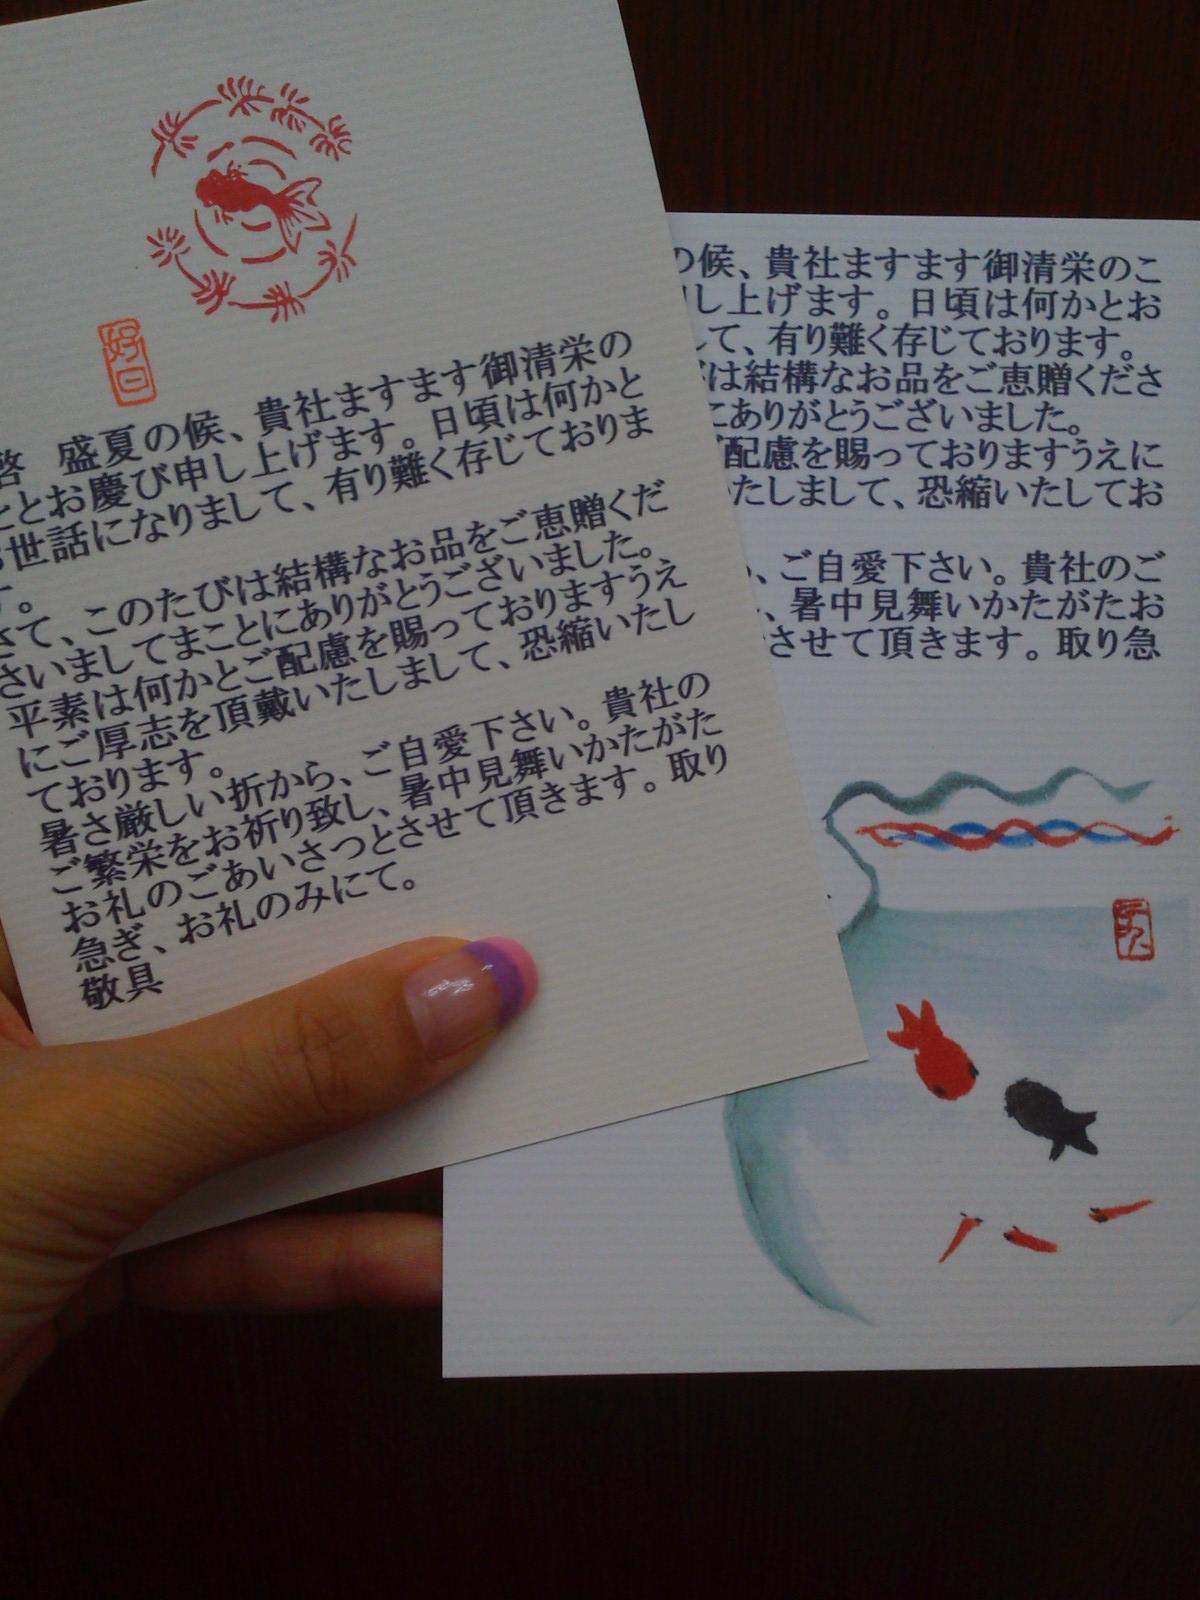 好日
啓　盛夏の候、貴社ますます御清栄の
ととお慶び申し上げます。日頃は何かと
世話になりまして、有り難く存じておりま
す。
さて、このたびは結構なお品をご恵贈くだ
さいましてまことにありがとうございました。
平素は何かとご配慮を賜っておりますうえ
にご厚志を頂戴いたしまして、恐縮いたし
ております。
暑さ厳しい折から、ご自愛下さい。貴社の
ご繁栄をお祈り致し、暑中見舞いかたがた
お礼のごあいさつとさせて頂きます。取り
急ぎ、お礼のみにて。
敬具
の候、貴社ますます御清栄のこ
し上げます。日頃は何かとお
て、有り難く存じております。
は結構なお品をご恵贈くださ
にありがとうございました。
ご配慮を賜っておりますうえに
たしまして、恐縮いたしてお
、ご自愛下さい。貴社のご
、暑中見舞いかたがたお
させて頂きます。取り急